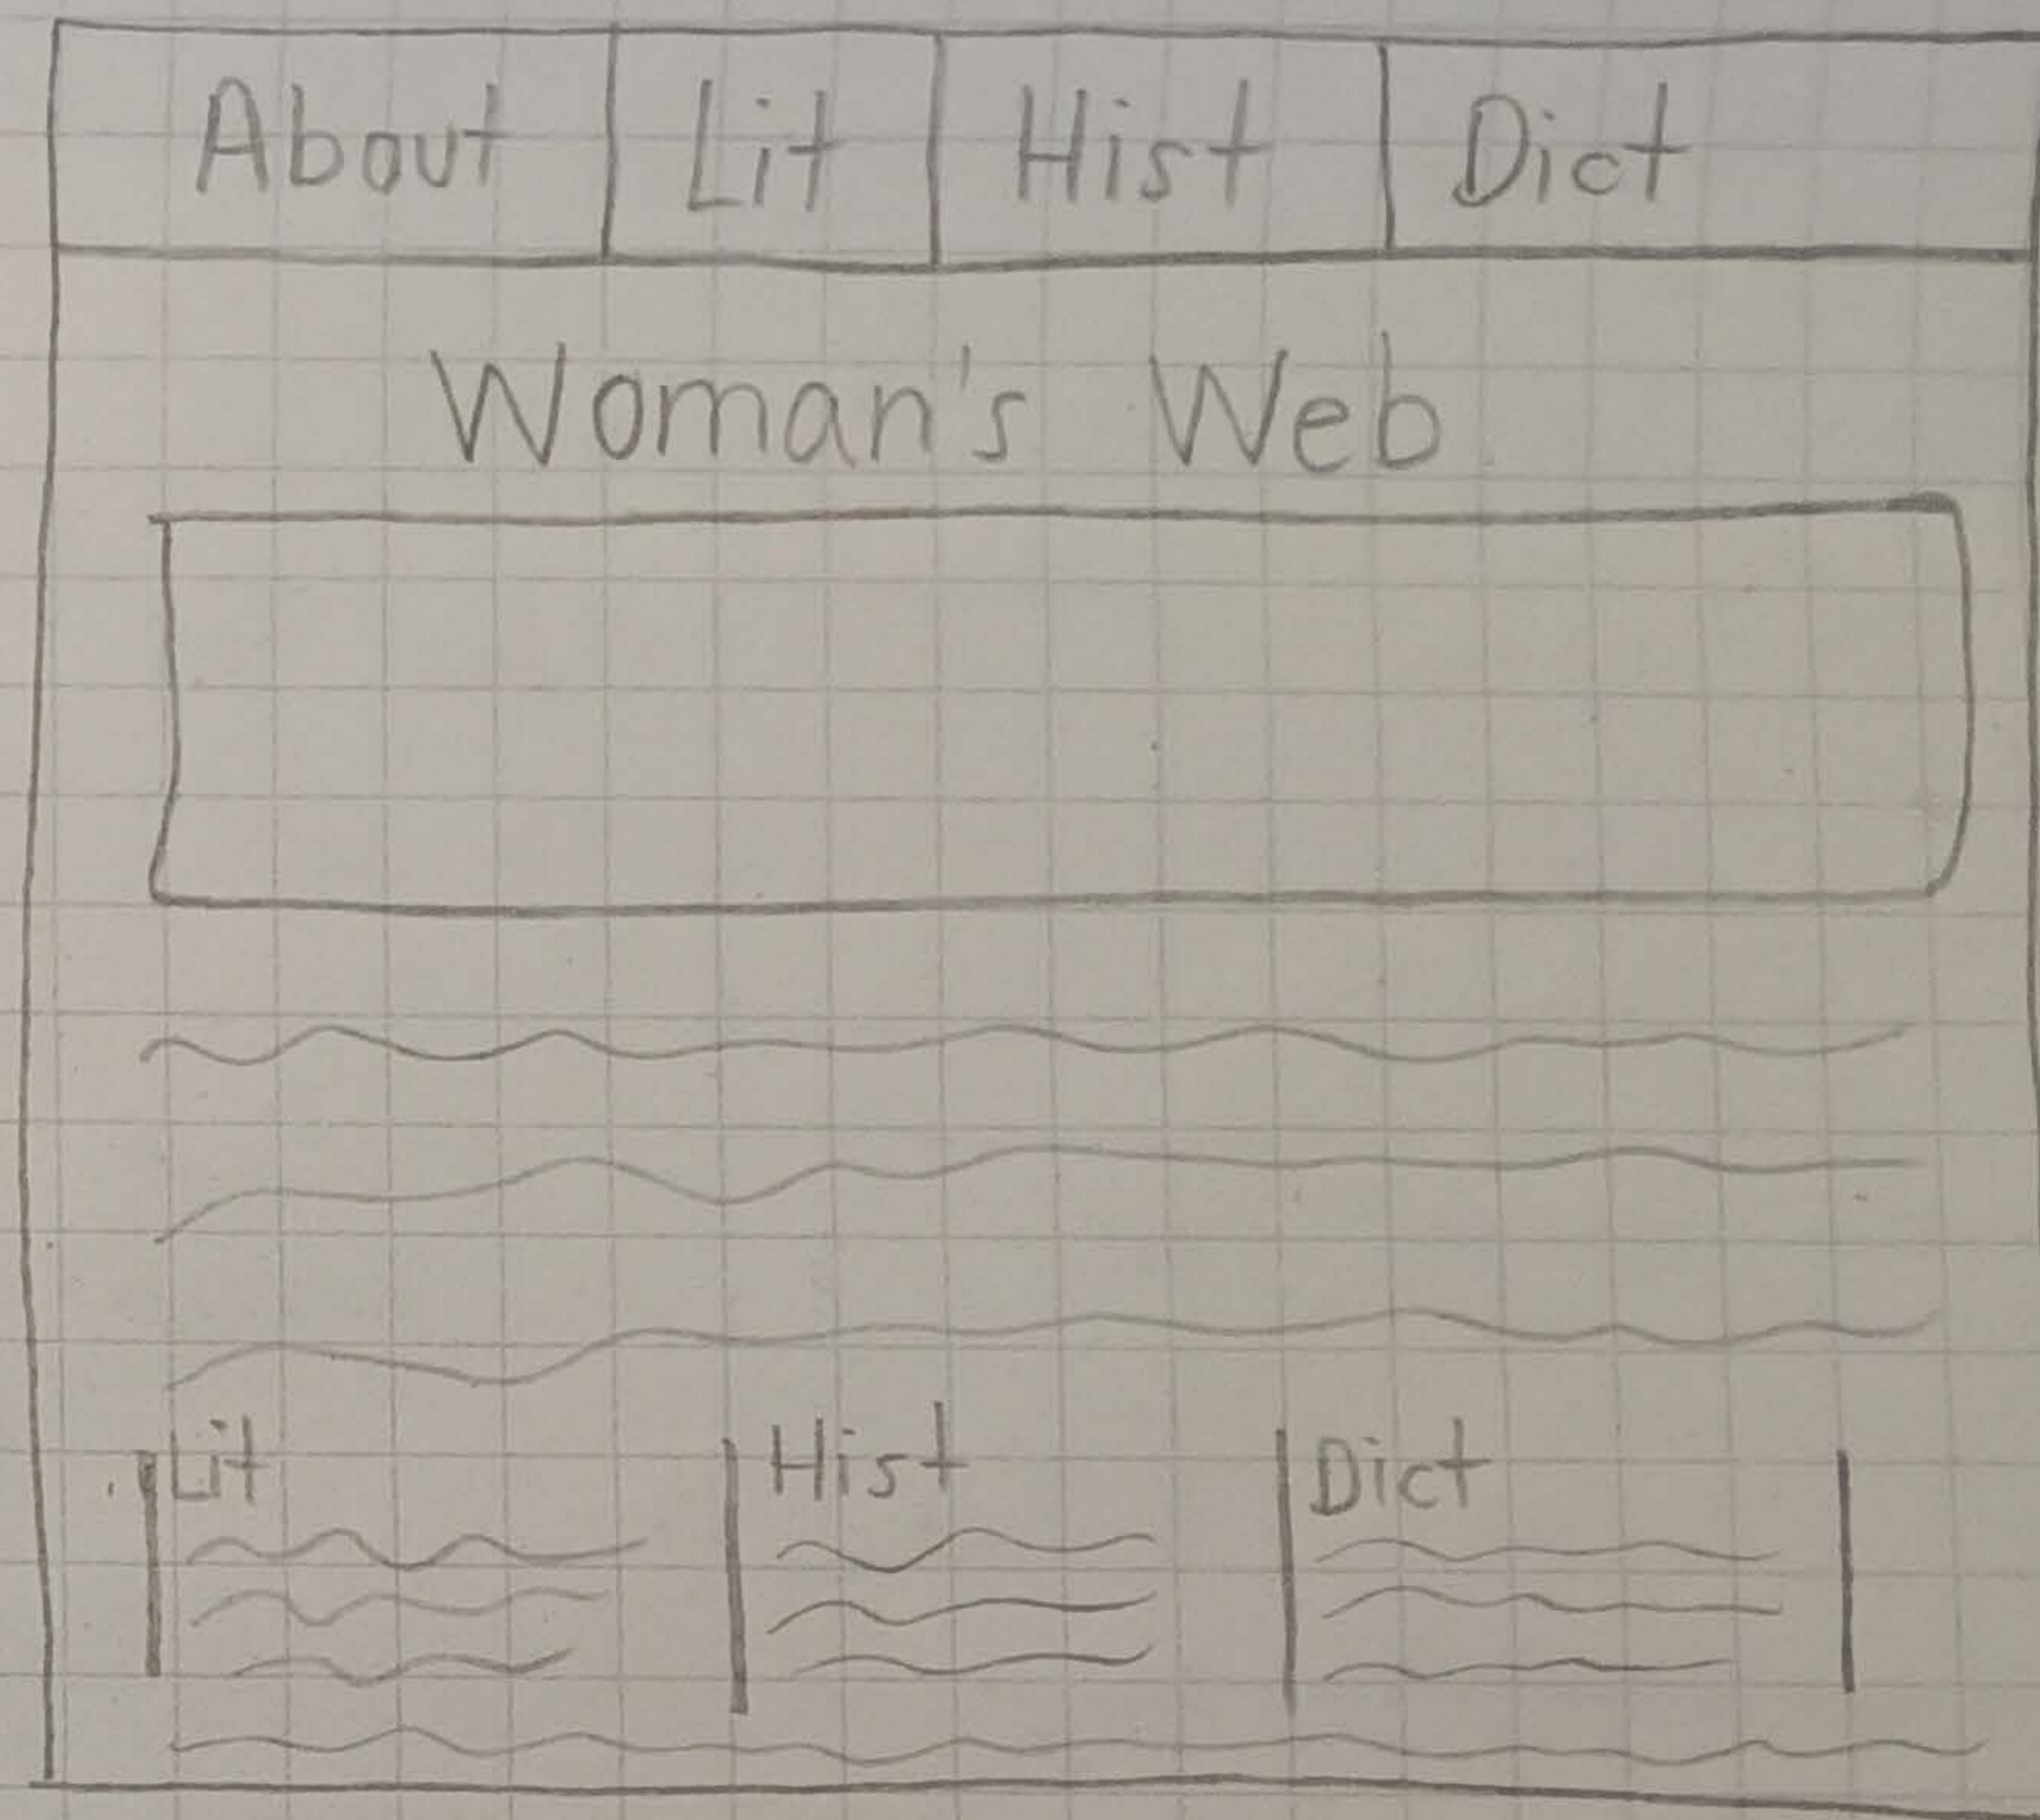 About Lit Hist Dict
Woman's Web
Lit Hist Dict